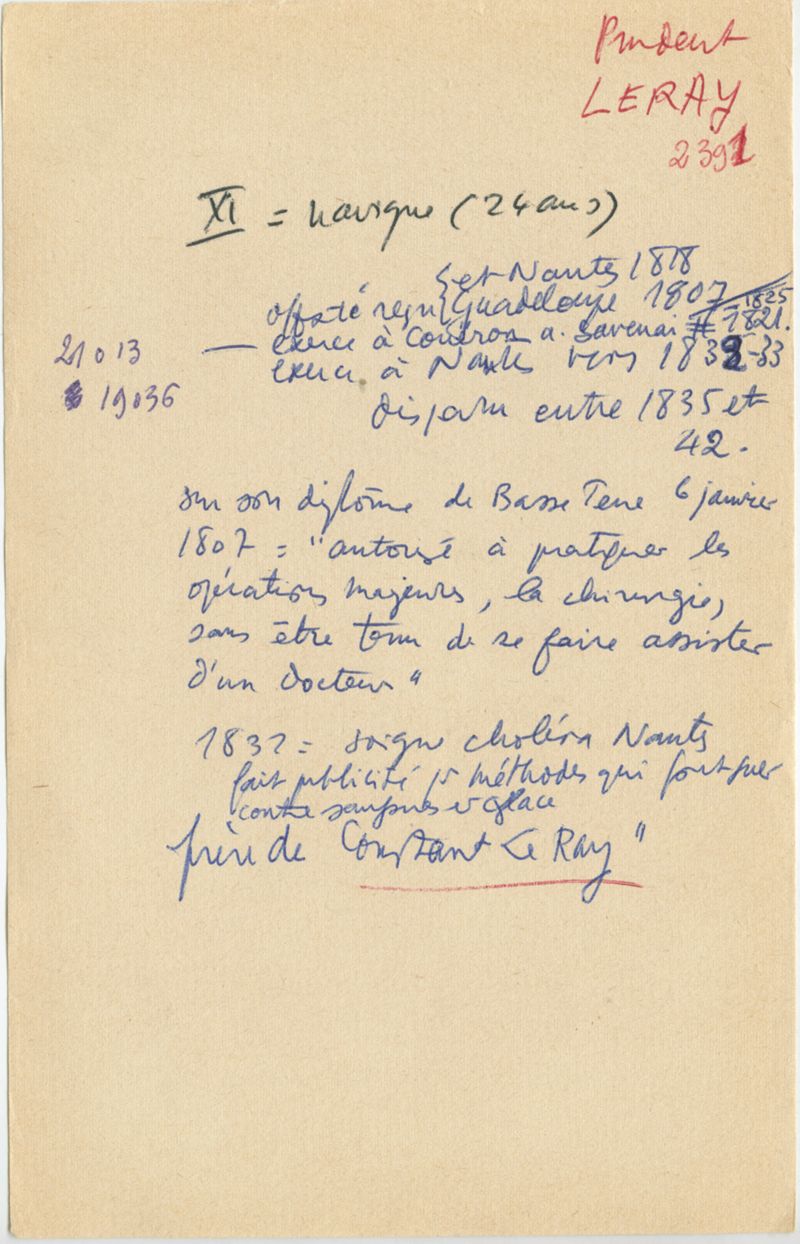 Prudent
LERAY
2391
XI = navigue (24 ans)
et Nantes 1818
off santé reçu Guadeloupe 1807 1825
21013 — exerce à Couëron a. Savenai 1821.
19036 exerce à Nantes vers 1832-33
disparu entre 1835 et
42.
sur son diplôme de Basse Terre 6 janvier
1807 = "autorisé à pratiquer les
opérations majeures, la chirurgie,
sans être tenu de se faire assister
d'un docteur"
1832 = soigne choléra Nantes
fait publicité pr méthodes qui font fuer
contre sangsues et glace
père de Constant Le Ray"